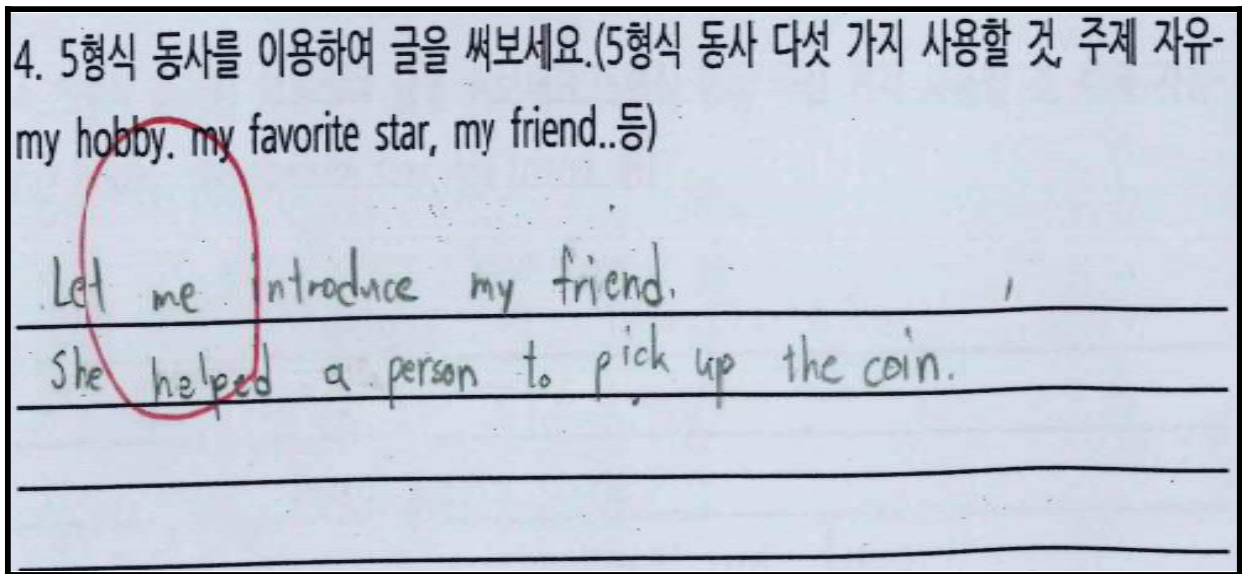 4. 5형식 동사를 이용하여 글을 써보세요.(5형식 동사 다섯 가지 사용할 것, 주제 자유-
my hobby. my favorite star, my friend..등)
Let me introduce my friend.
She helped a person to pick up the coin.